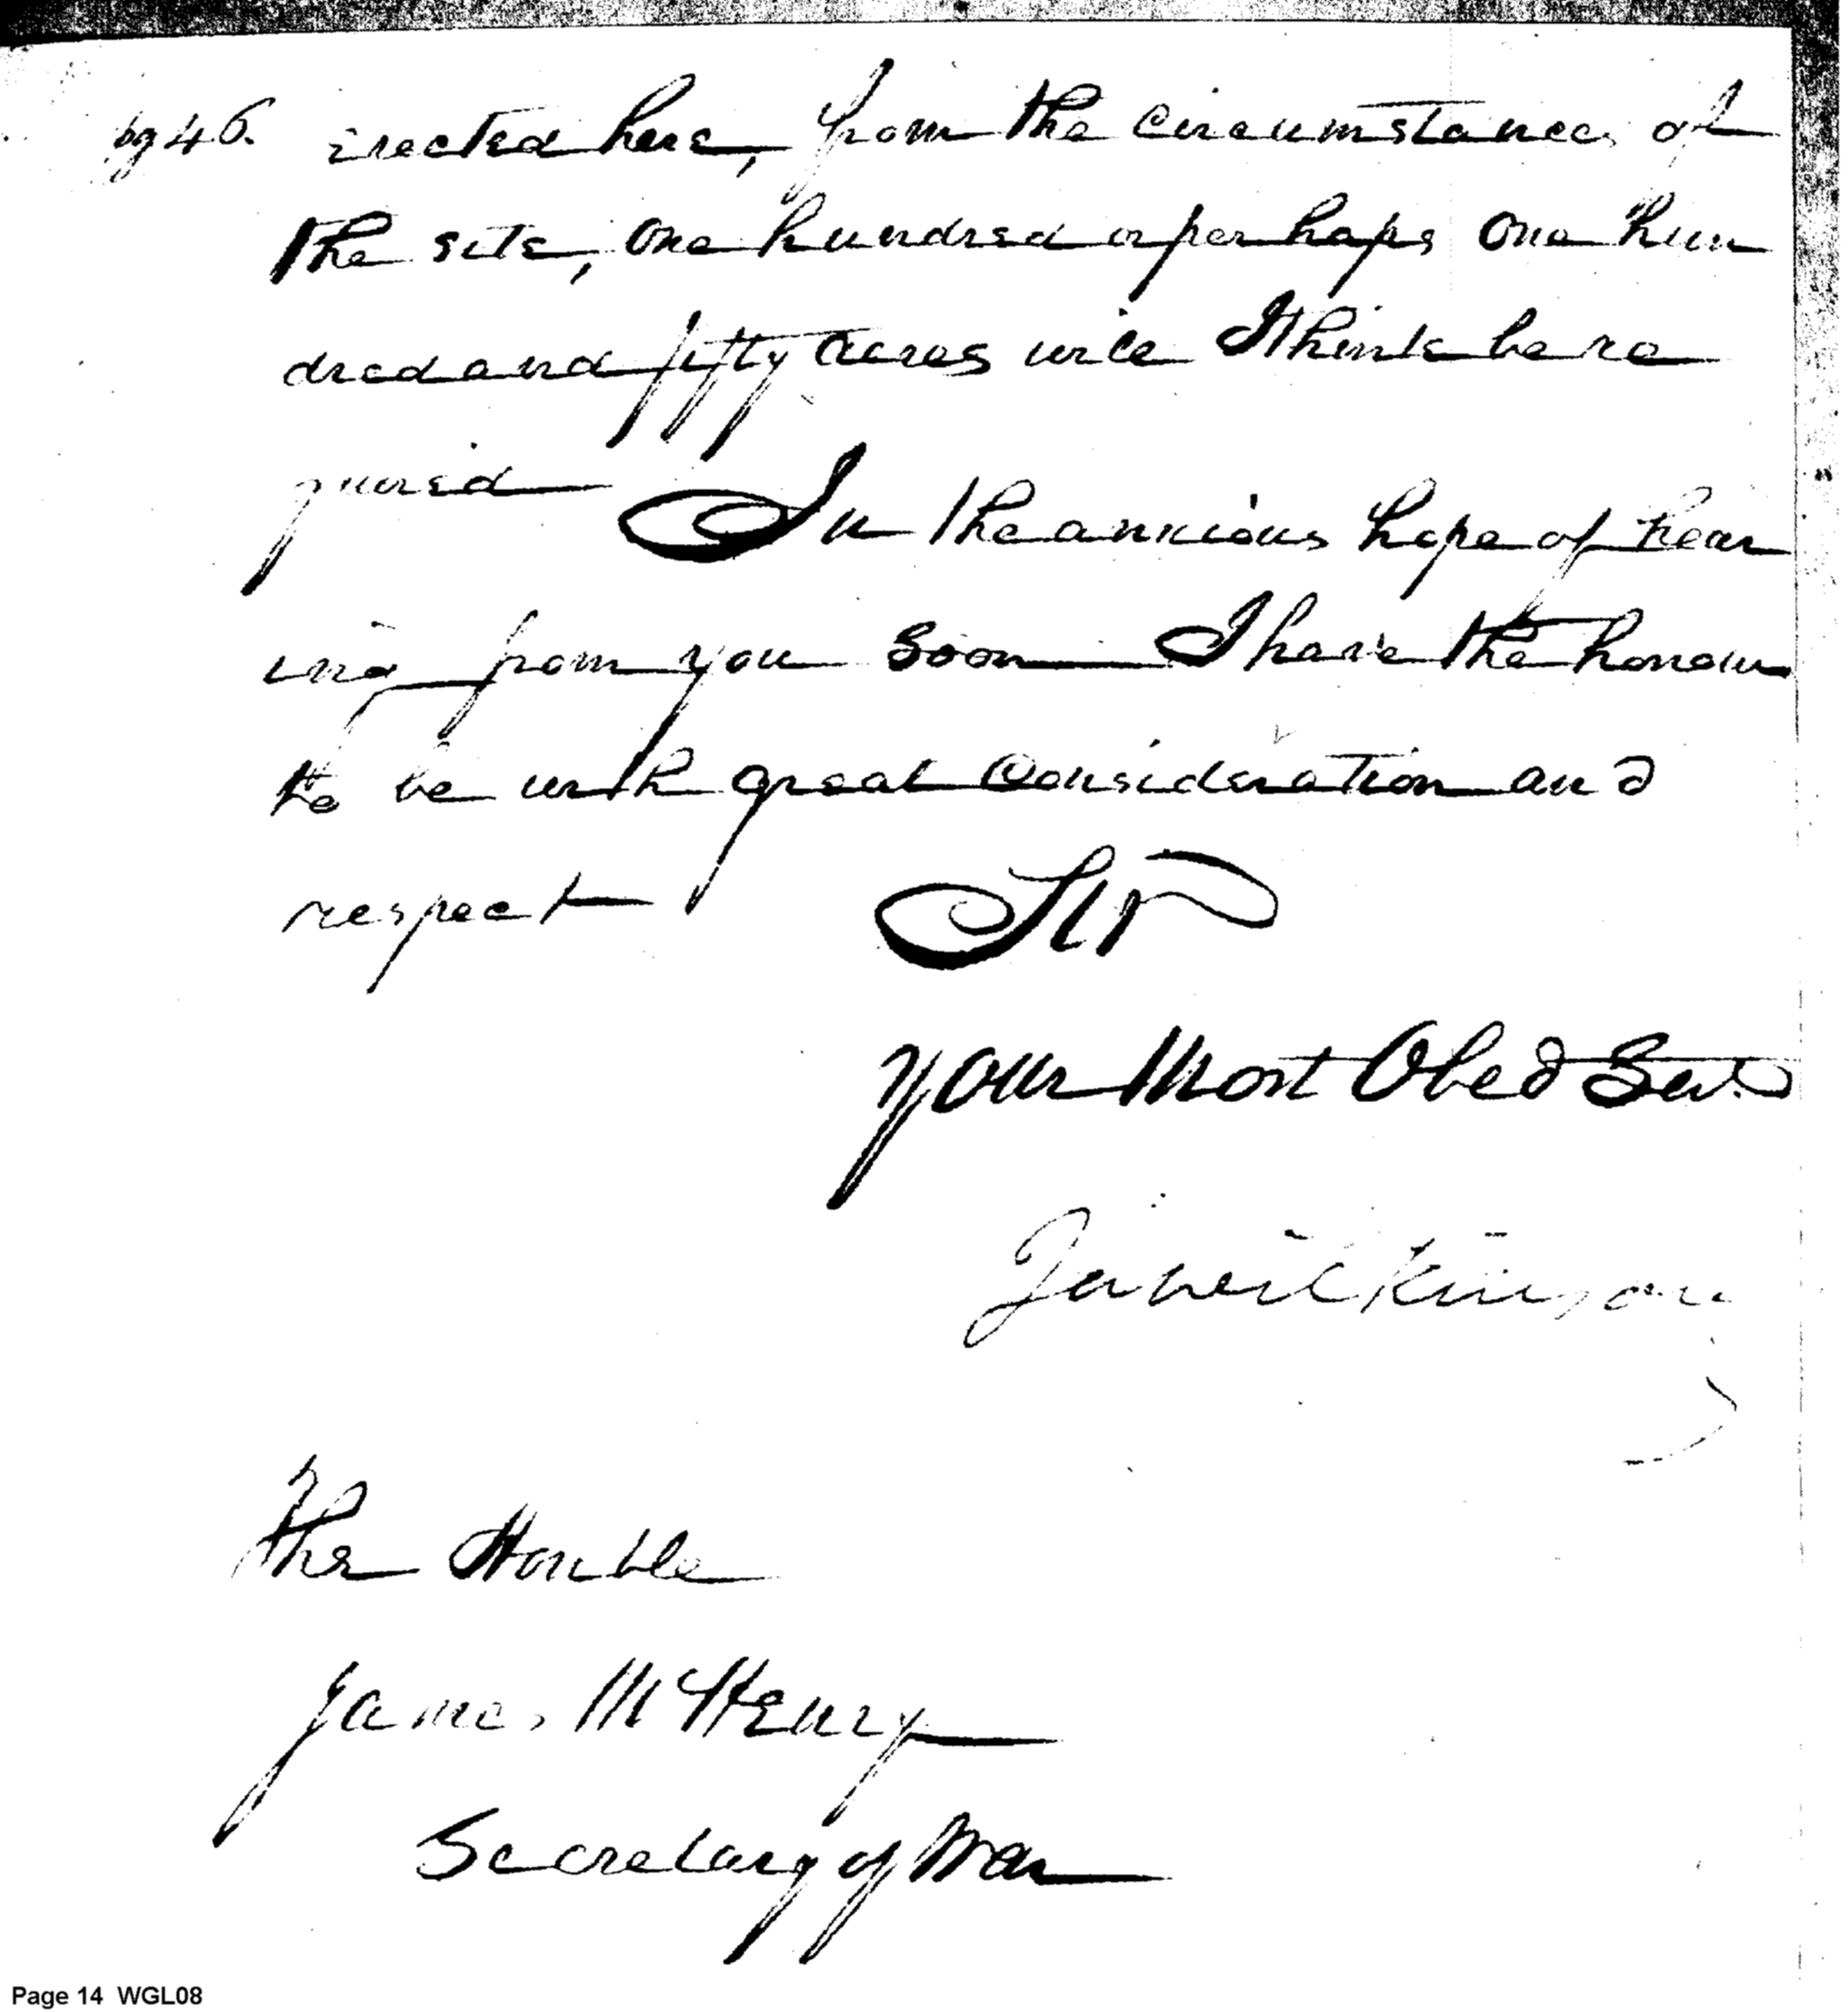 pg 46. erected here, from the circumstances of
the site, One hundred or perhaps One hun
dred and fifty acres will I think be re
quired In the anxious hope of hear
ing from you soon I have the honour
to be with great Consideration and
respect Sir
your Most Obed Sert.
Ja Wilkinson
The Honble
James McHenry
Secretary of War
Page 14 WGL08